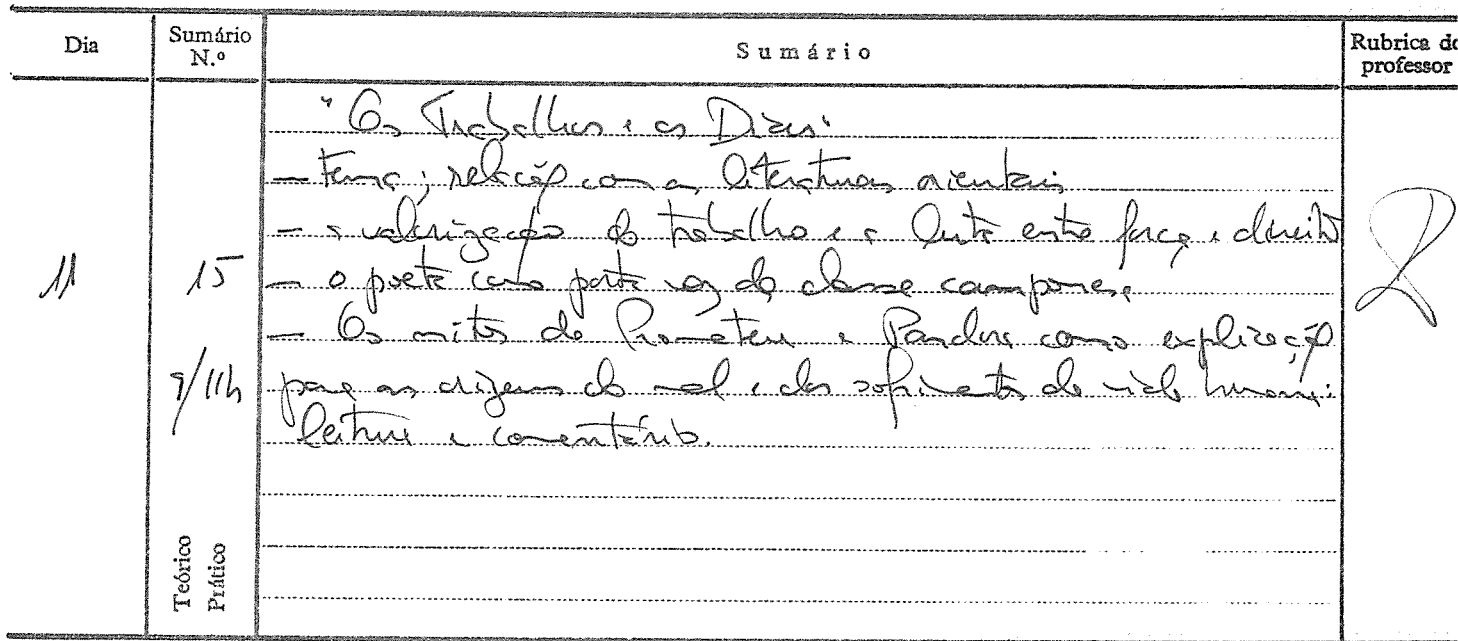 Dia
Sumário N.º
Sumário
Rubrica do professor
11
15
9/11h
Teórico
Prático
"Os Trabalhos e os Dias"
– tema; relação com as literaturas orientais
– a valorização do trabalho e a luta entre força e direito
– o poeta como porta voz da classe camponesa
– Os mitos de Prometeu e Pandora como explicação
para as origens do mal e dos sofrimentos da vida humana:
leitura e comentário.